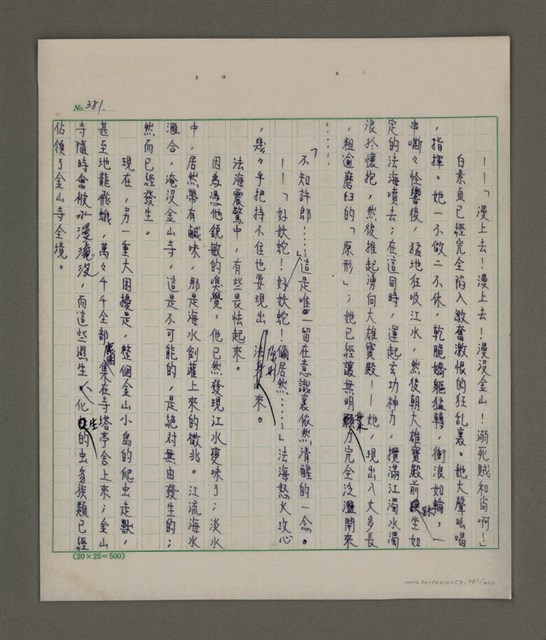 No. 381.
——「漫上去!漫上去!漫沒金山!溺死賊和尚啊!」
白素貞已經完全陷入激奮激恨的狂亂裏。她大聲吆喝
,指揮。她一不做二不休,乾脆嬌軀猛轉,衝浪如輪,一
串嘶々怪響後,猛地狂吸江水,然後朝大雄寶殿前趺坐如
定的法海噴去;在這同時,運起玄功神力,攬滿江濁水濁
浪於懷抱,然後推起湧向大雄寶殿——她,現出八丈多長
,粗逾磨臼的「原形」;她已經讓無明業力完全泛濫開來
……
「不知許郎……」這是唯一留在意識裏依然清醒的一念。
——「好妖蛇!好妖蛇!儞居然……」法海怒火攻心
,幾々乎把持不住也要現出原形來。
法海震驚中,有些畏怯起來。
因為憑他銳敏的嗅覺,他已然發現江水變味了;淡水
中,居然帶有鹹味,那是海水倒灌上來的徵兆。江流海水
滙合,淹沒金山寺,這是不可能的,是絕對無由發生的;
然而已經發生。
現在,另一重大困擾是:整個金山小島的爬虫走獸,
甚至地龍飛蛾,萬々千千全部蟻集在寺塔亭舍上來;金山
寺隨時會被水漫淹沒,而這些逃生的虫豸族類已經
佔領了金山寺全境。
(20×25=500)